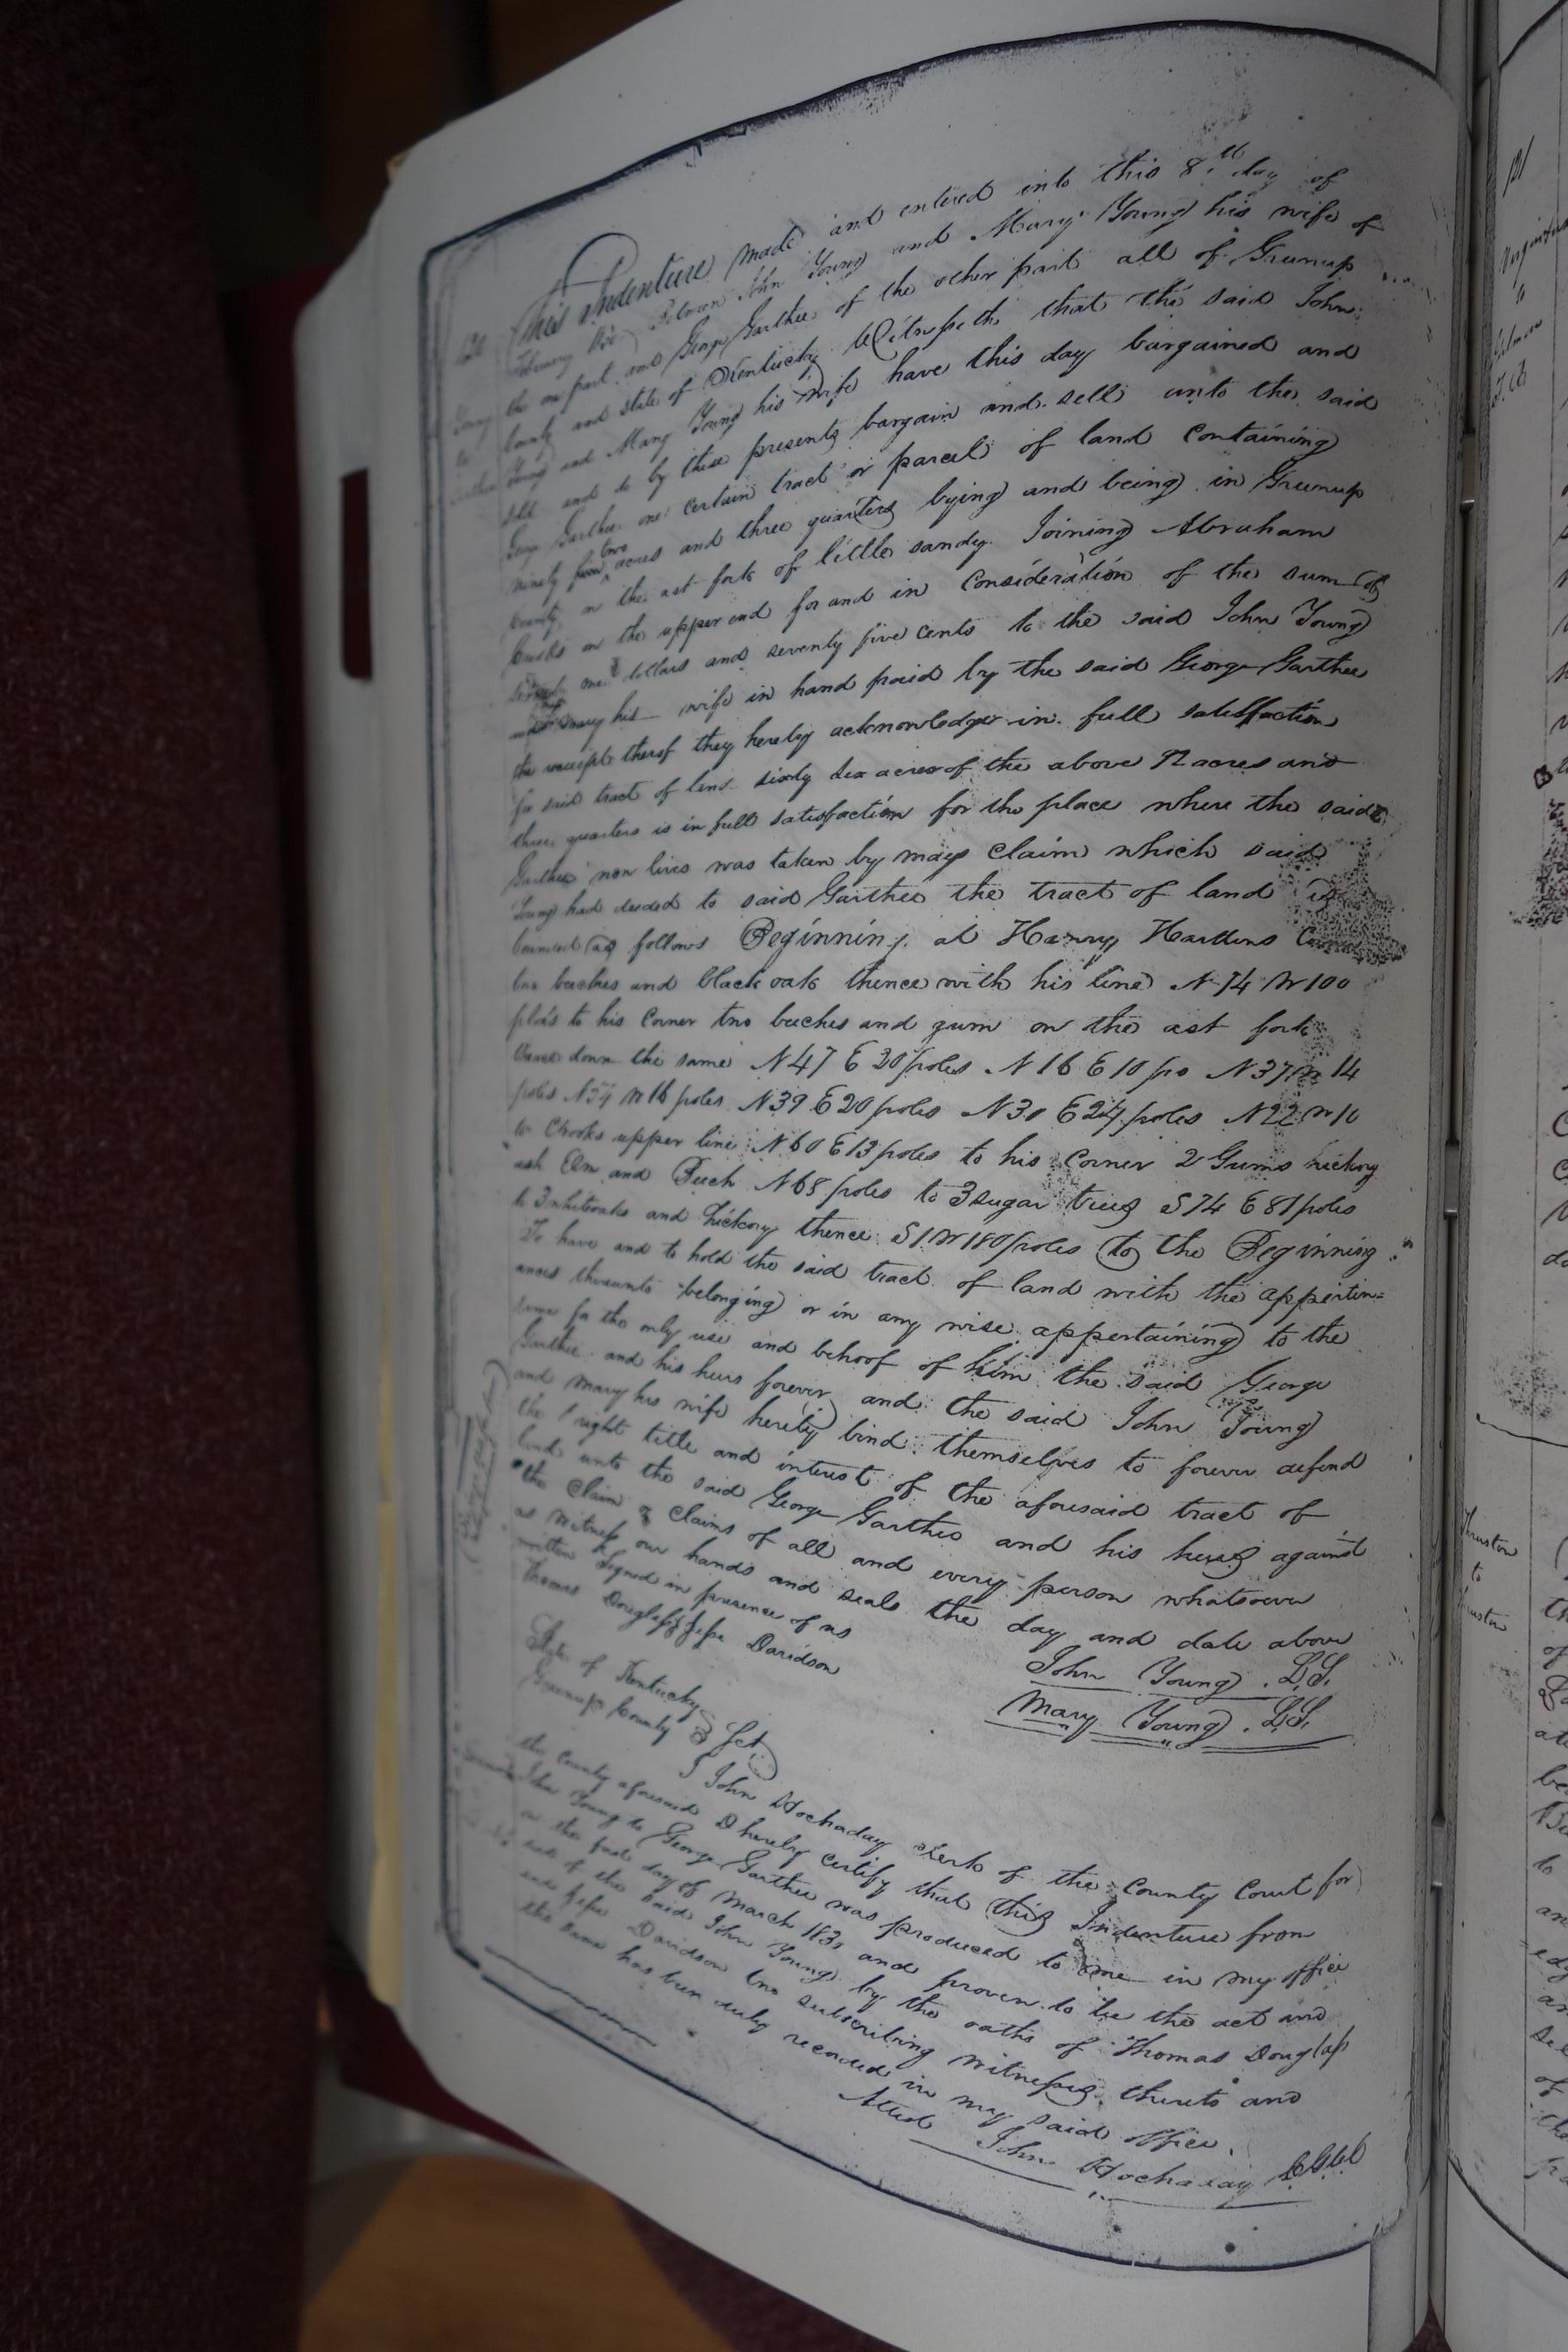 This Indenture made and entered into this 8th day of
February Between John Young and Mary Young his wife of
the one part and George Garthee of the other part all of Greenup
County and state of Kentucky Witnesseth that the said John
Young and Mary Young his wife have this day bargained and
sold and do by these presents bargain and sell unto the said
George Garthee one certain tract or parcel of land containing
two
ninety acres and three quarters lying and being in Greenup
County on the east fork of little sandy Joining Abraham
on the upper end for and in Consideration of the sum of
one dollars and seventy five cents to the said John Young
mary his wife in hand paid by the said George Garthee
the receipt thereof they hereby acknowledge in full satisfaction
for said tract of land sixty six acres of the above 92 acres and
three quarters is in full satisfaction for the place where the said
Garthee now lives was taken by mays claim which said
Young had deeded to said Garthee the tract of land is
bounded as follows Beginning at Henry Harttens
two beaches and black oak thence with his line N 74 W 100
poles to his Corner two beeches and gum on the east fork
thence down the same N 47 E 20 poles N 16 E 10 po N 37 W 14
poles W 16 poles N 39 E 20 poles N 30 E 24 poles N 22 W 10
to Crooks upper line N 60 E 13 poles to his Corner 2 Gums hickory
ash Elm and Beech N 68 poles to 3 sugar trees S 74 E 81 poles
to 3 whiteoaks and hickory thence S 1 W 180 poles to the Beginning
To have and to hold the said tract of land with the appertin=
ances thereunto belonging or in any wise appertaining to the
same for the only use and behoof of him the said George
Garthee and his heirs forever and the said John Young
and mary his wife hereby bind themselves to forever defend
the right title and interest of the aforesaid tract of
land unto the said George Garthee and his heirs against
the Claim or Claims of all and every person whatsoever
as witness our hands and seals the day and date above
written Signed in presence of us
Thomas Douglass Jesse Davidson
John Young L.S.
Mary Young L.S.
State of Kentucky
Greenup County } Sct
I John Hockaday clerk of the County Court for
the County aforesaid Do hereby certify that this Indenture from
John Young to George Garthee was produced to me in my office
on the first day of March 1830 and proven to be the act and
deed of the said John Young by the oaths of Thomas Douglass
and Jesse Davidson two subscribing witnesses thereto and
the same has been duly recorded in my said office
Attest John Hockaday
121
Thruston
to